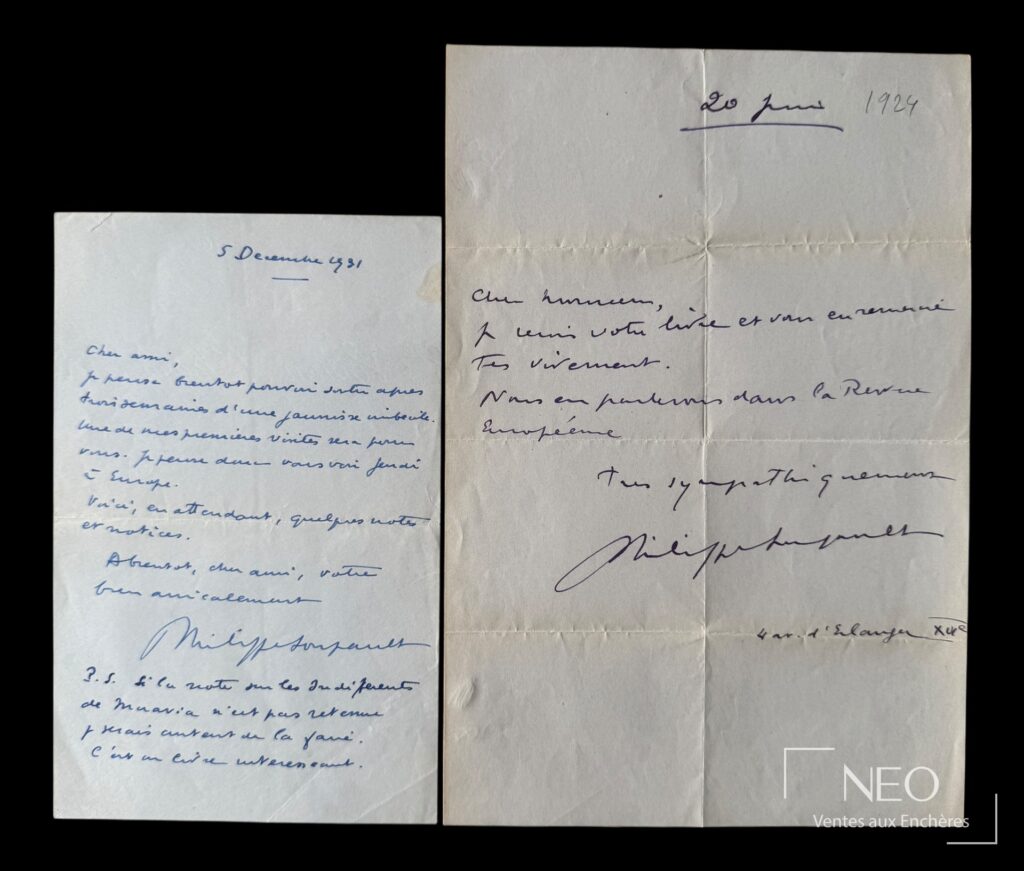 5 Decembre 1931
Cher ami,
je pense bientot pouvoir sortir apres
trois semaines d'une jaunisse imbecile.
Une de mes premières visites sera pour
vous. Je pense donc vous voir jeudi
à Europe.
Voici, en attendant, quelques notes
et notices.
A bientot, cher ami, votre
bien amicalement
Philippe Soupault
P.S. Si la note sur les Indifférents
de Moravia n'est pas retenue
je serais content de la
C'est un livre interessant.
20 juin 1924
Cher Monsieur,
Je reçois votre livre et vous en remercie
tres vivement.
Nous en parlerons dans la Revue
Européenne
Tres sympathiquement
Philippe Soupault
4 av. d'Erlanger XVIe
NEO
Ventes aux Enchères